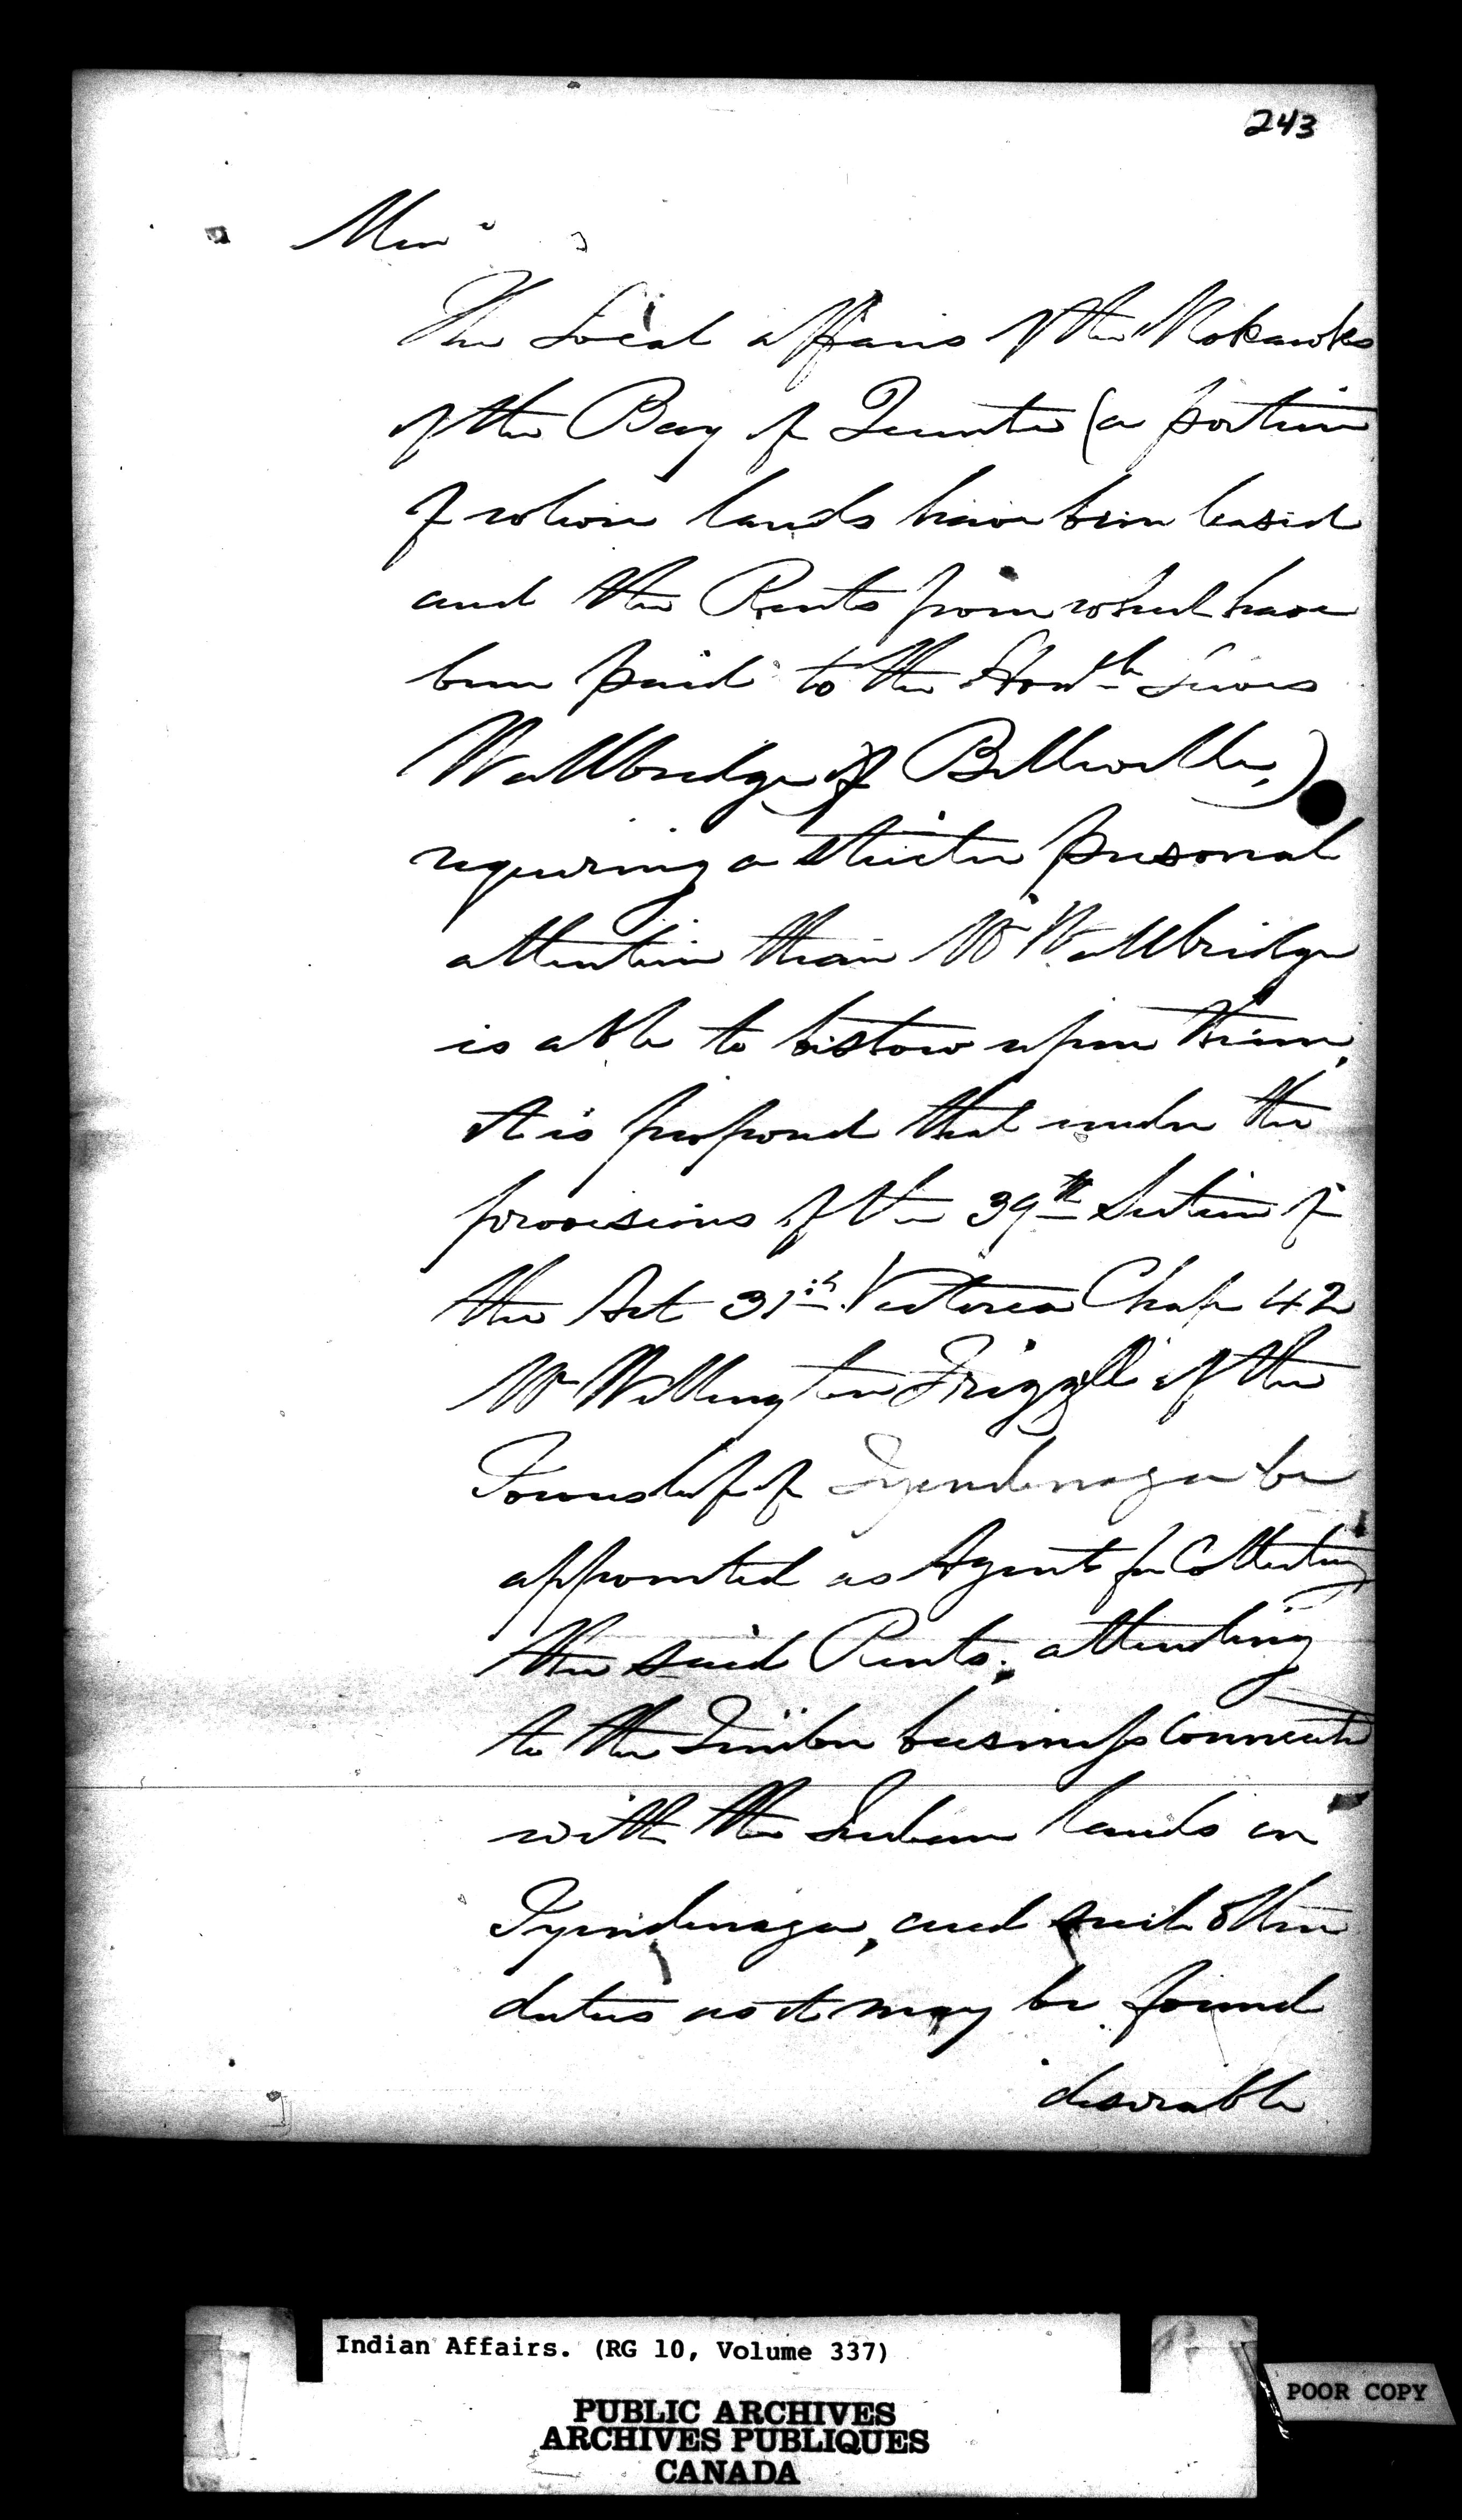 243
Mem
The Local affairs of the Mohawks
of the Bay of Quinte (a portion
of whose lands have been leased
and the Rents from which have
been paid to the Honble Lewis
Wallbridge of Belleville,)
requiring a stricter personal
attention than Mr Wallbridge
is able to bestow upon them,
it is proposed that under the
provisions of the 39th Section of
the Act 31st Victoria Chap 42
Mr Wellington Frizzell of the
Township of Tyendenaga be
appointed as Agent for Collecting
the said Rents, attending
to the Timber business connected
with the Indian lands in
Tyendenaga, and such other
duties as it may be found
desirable
Indian Affairs. (RG 10, Volume 337)
PUBLIC ARCHIVES
ARCHIVES PUBLIQUES
CANADA
POOR COPY